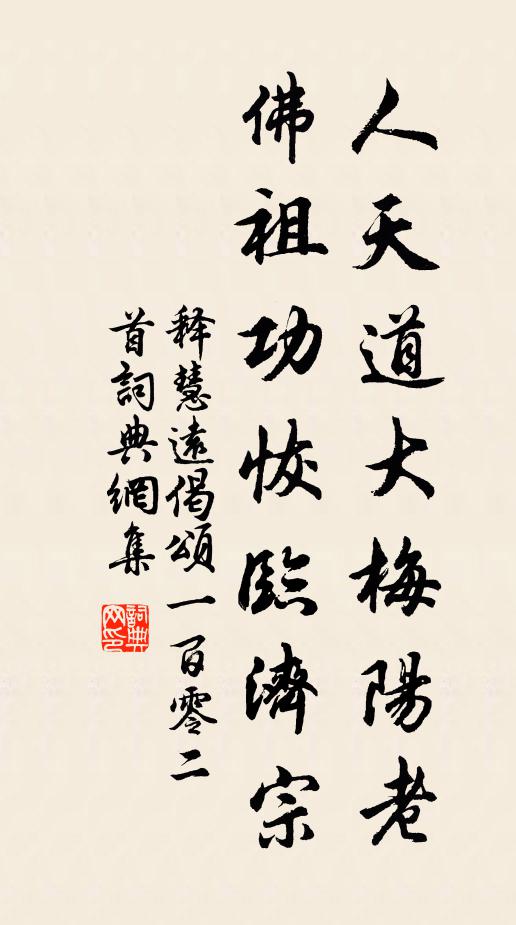 人天道大梅陽老
佛祖功恢臨濟宗
释慧遠偈頌一百零二
首詞典網集
詞典
网印